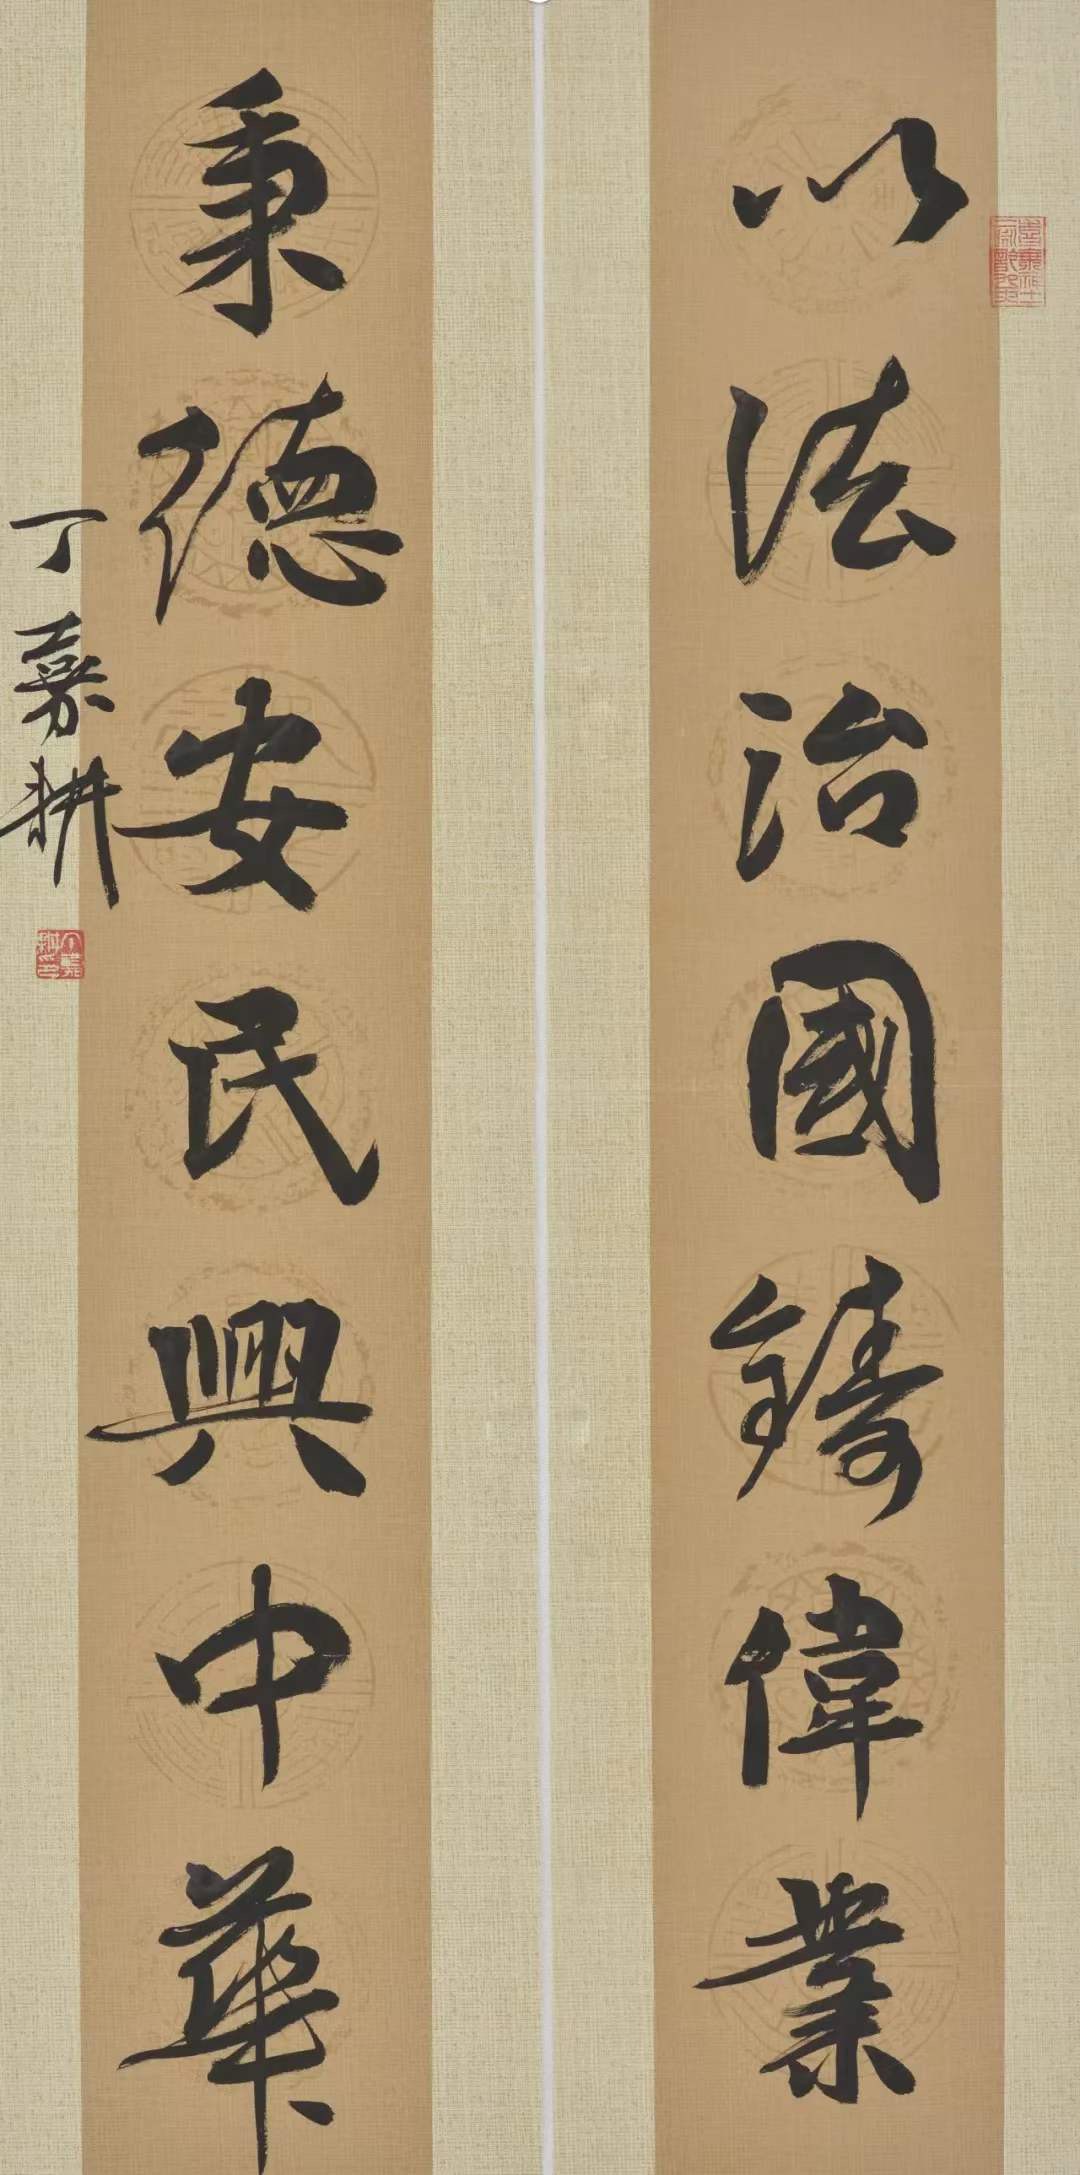 以法治國鑄偉業
秉德安民興中華
丁嘉耕